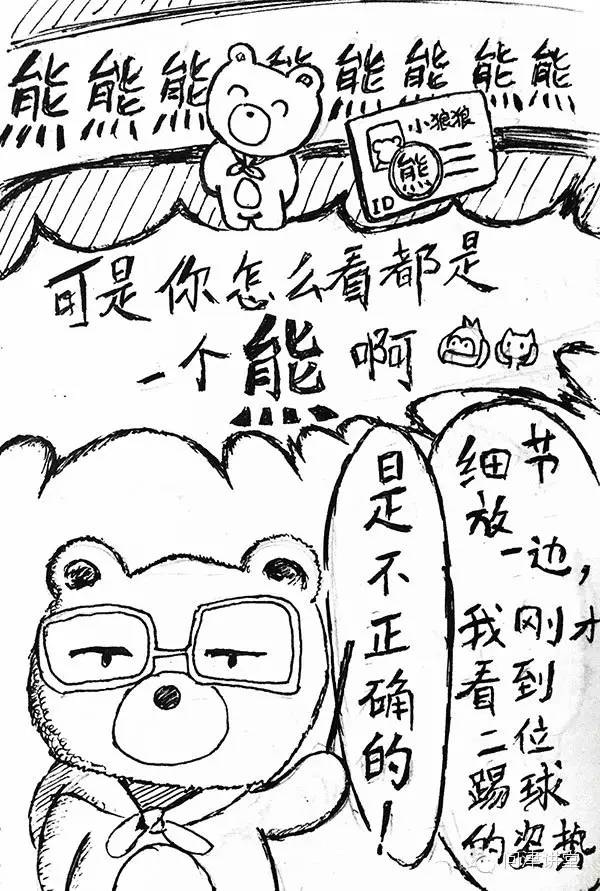 熊熊熊熊熊熊熊熊
小狼狼
熊
ID
可是你怎么看都是
一个熊啊
细节
放一边，
我刚才
看到
二位
踢球
的姿势
是不正确的！